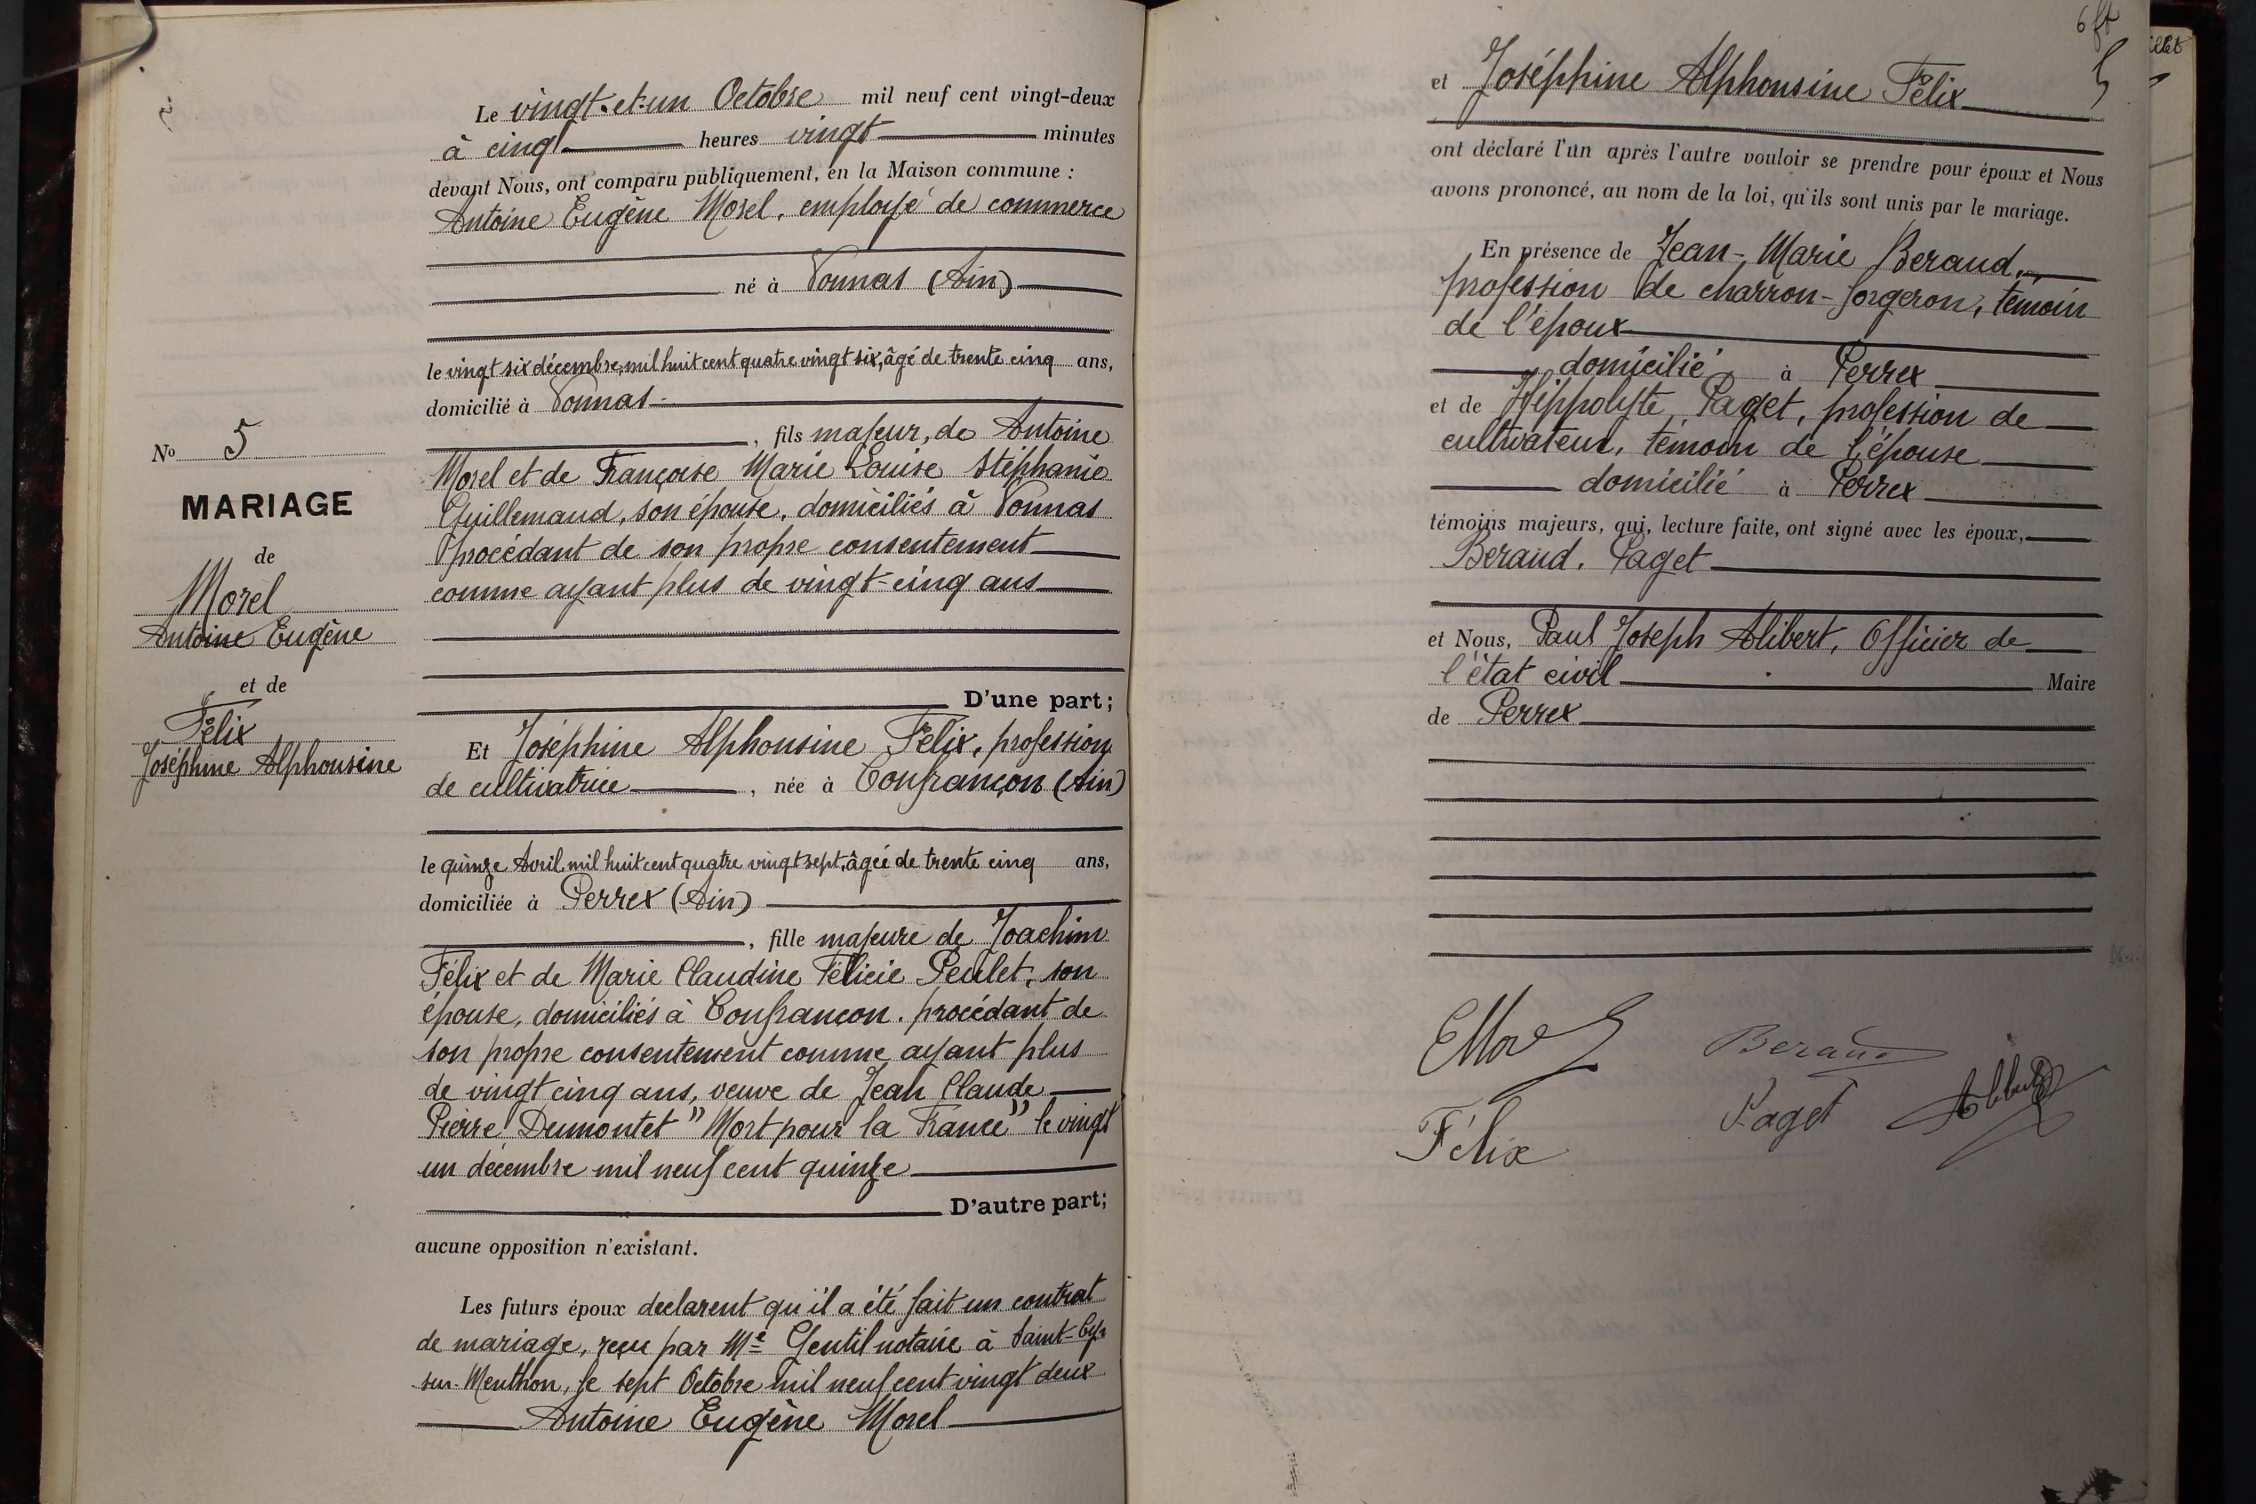 Le vingt-et-un Octobre mil neuf cent vingt-deux
à cinq heures vingt minutes
devant Nous, ont comparu publiquement, en la Maison commune :
Antoine Eugène Morel, employé de commerce
né à Vonnas (Ain)
le vingt six décembre, mil huit cent quatre vingt six, âgé de trente cinq ans,
domicilié à Vonnas
, fils majeur, de Antoine
Morel et de Françoise Marie Louise Stéphanie
Guillemaud, son épouse, domiciliés à Vonnas
procédant de son propre consentement
comme ayant plus de vingt-cinq ans
D'une part;
No 5
MARIAGE
de
Morel
Antoine Eugène
et de
Félix
Joséphine Alphonsine
Et Joséphine Alphonsine Félix, profession
de cultivatrice , née à Confrançon (Ain)
le quinze Avril mil huit cent quatre vingt sept, âgée de trente cinq ans,
domiciliée à Perrex (Ain)
, fille majeure de Joachim
Félix et de Marie Claudine Félicie Peulet, son
épouse, domiciliés à Confrançon. procédant de
son propre consentement comme ayant plus
de vingt cinq ans, veuve de Jean Claude
Pierre Dumontet "Mort pour la France" le vingt
un décembre mil neuf cent quinze
D'autre part;
aucune opposition n'existant.
Les futurs époux declarent qu'il a été fait un contrat
de mariage, reçu par Me Gentil notaire à Saint-Cyr
sur-Menthon, le sept Octobre mil neuf cent vingt deux
Antoine Eugène Morel
6
et Joséphine Alphonsine Félix
ont déclaré l'un après l'autre vouloir se prendre pour époux et Nous
avons prononcé, au nom de la loi, qu'ils sont unis par le mariage.
En présence de Jean-Marie Beraud,
profession de charron-forgeron, témoin
de l'époux
domicilié à Perrex
et de Hippolyte Paget, profession de
cultivateur, témoin de l'épouse
domicilié à Perrex
témoins majeurs, qui, lecture faite, ont signé avec les époux,
Beraud. Paget
et Nous, Paul Joseph Alibert, Officier de
l'état civil Maire
de Perrex
EMorel
Beraud
Félix
Paget
Alibert